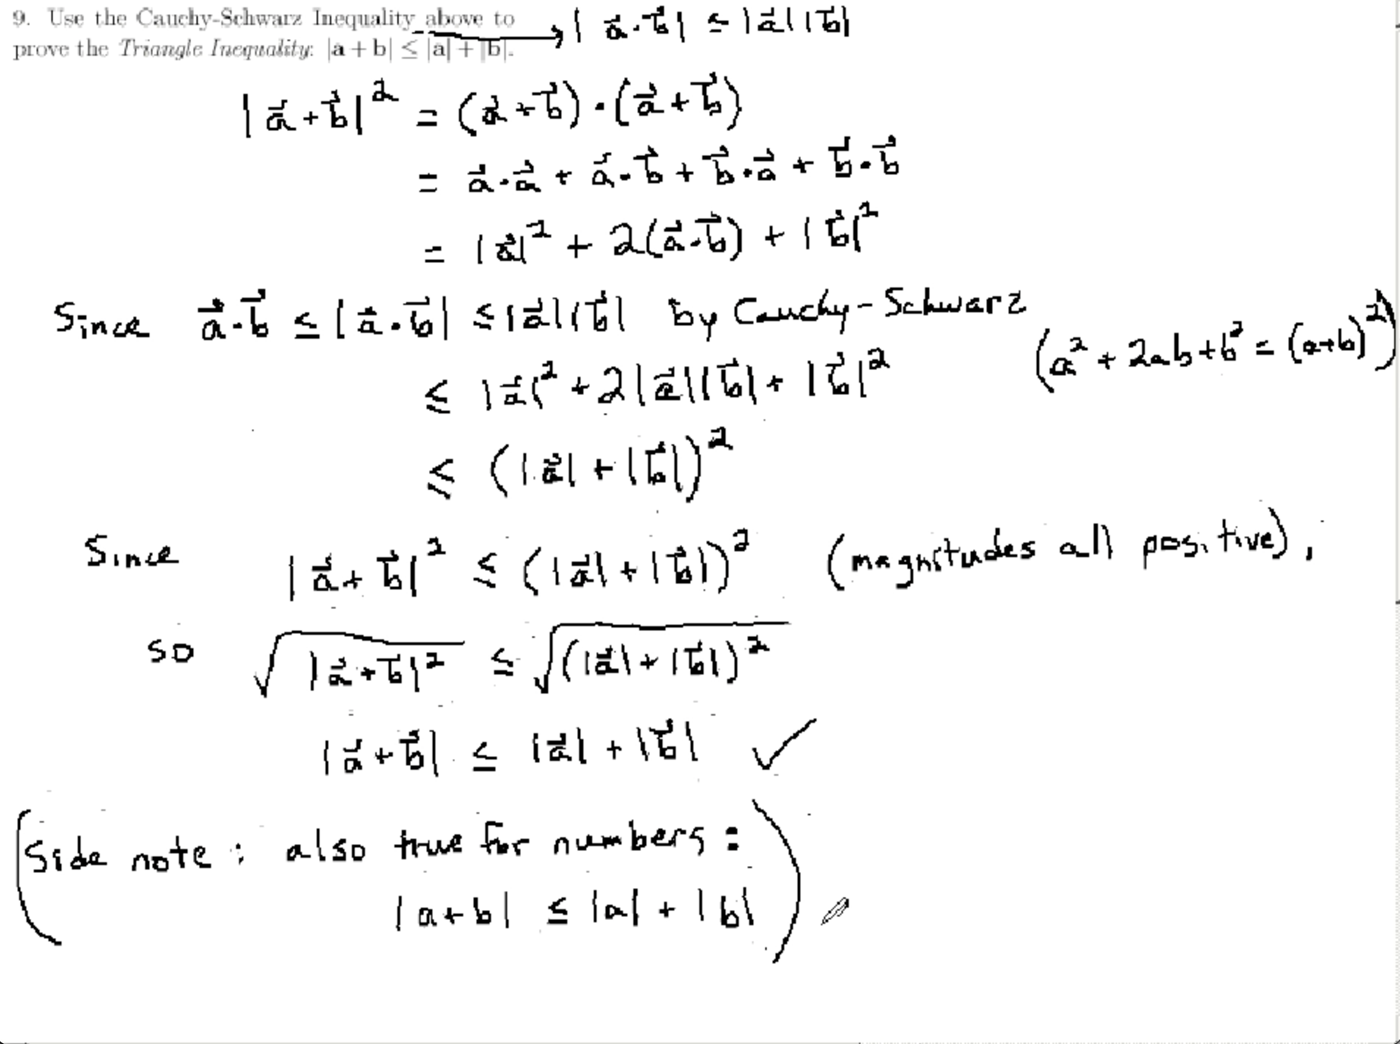 9. Use the Cauchy-Schwarz Inequality above to → |a⃗·b⃗| ≤ |a⃗||b⃗|
prove the Triangle Inequality: |a + b| ≤ |a| + |b|.
|a⃗+b⃗|² = (a⃗+b⃗)·(a⃗+b⃗)
= a⃗·a⃗ + a⃗·b⃗ + b⃗·a⃗ + b⃗·b⃗
= |a⃗|² + 2(a⃗·b⃗) + |b⃗|²
Since a⃗·b⃗ ≤ |a⃗·b⃗| ≤ |a⃗||b⃗| by Cauchy-Schwarz
(a² + 2ab + b² = (a+b)²)
≤ |a⃗|² + 2|a⃗||b⃗| + |b⃗|²
≤ (|a⃗| + |b⃗|)²
Since |a⃗+b⃗|² ≤ (|a⃗| + |b⃗|)² (magnitudes all positive),
so √|a⃗+b⃗|² ≤ √(|a⃗| + |b⃗|)²
|a⃗+b⃗| ≤ |a⃗| + |b⃗| ✓
(Side note: also true for numbers:
|a+b| ≤ |a| + |b|)